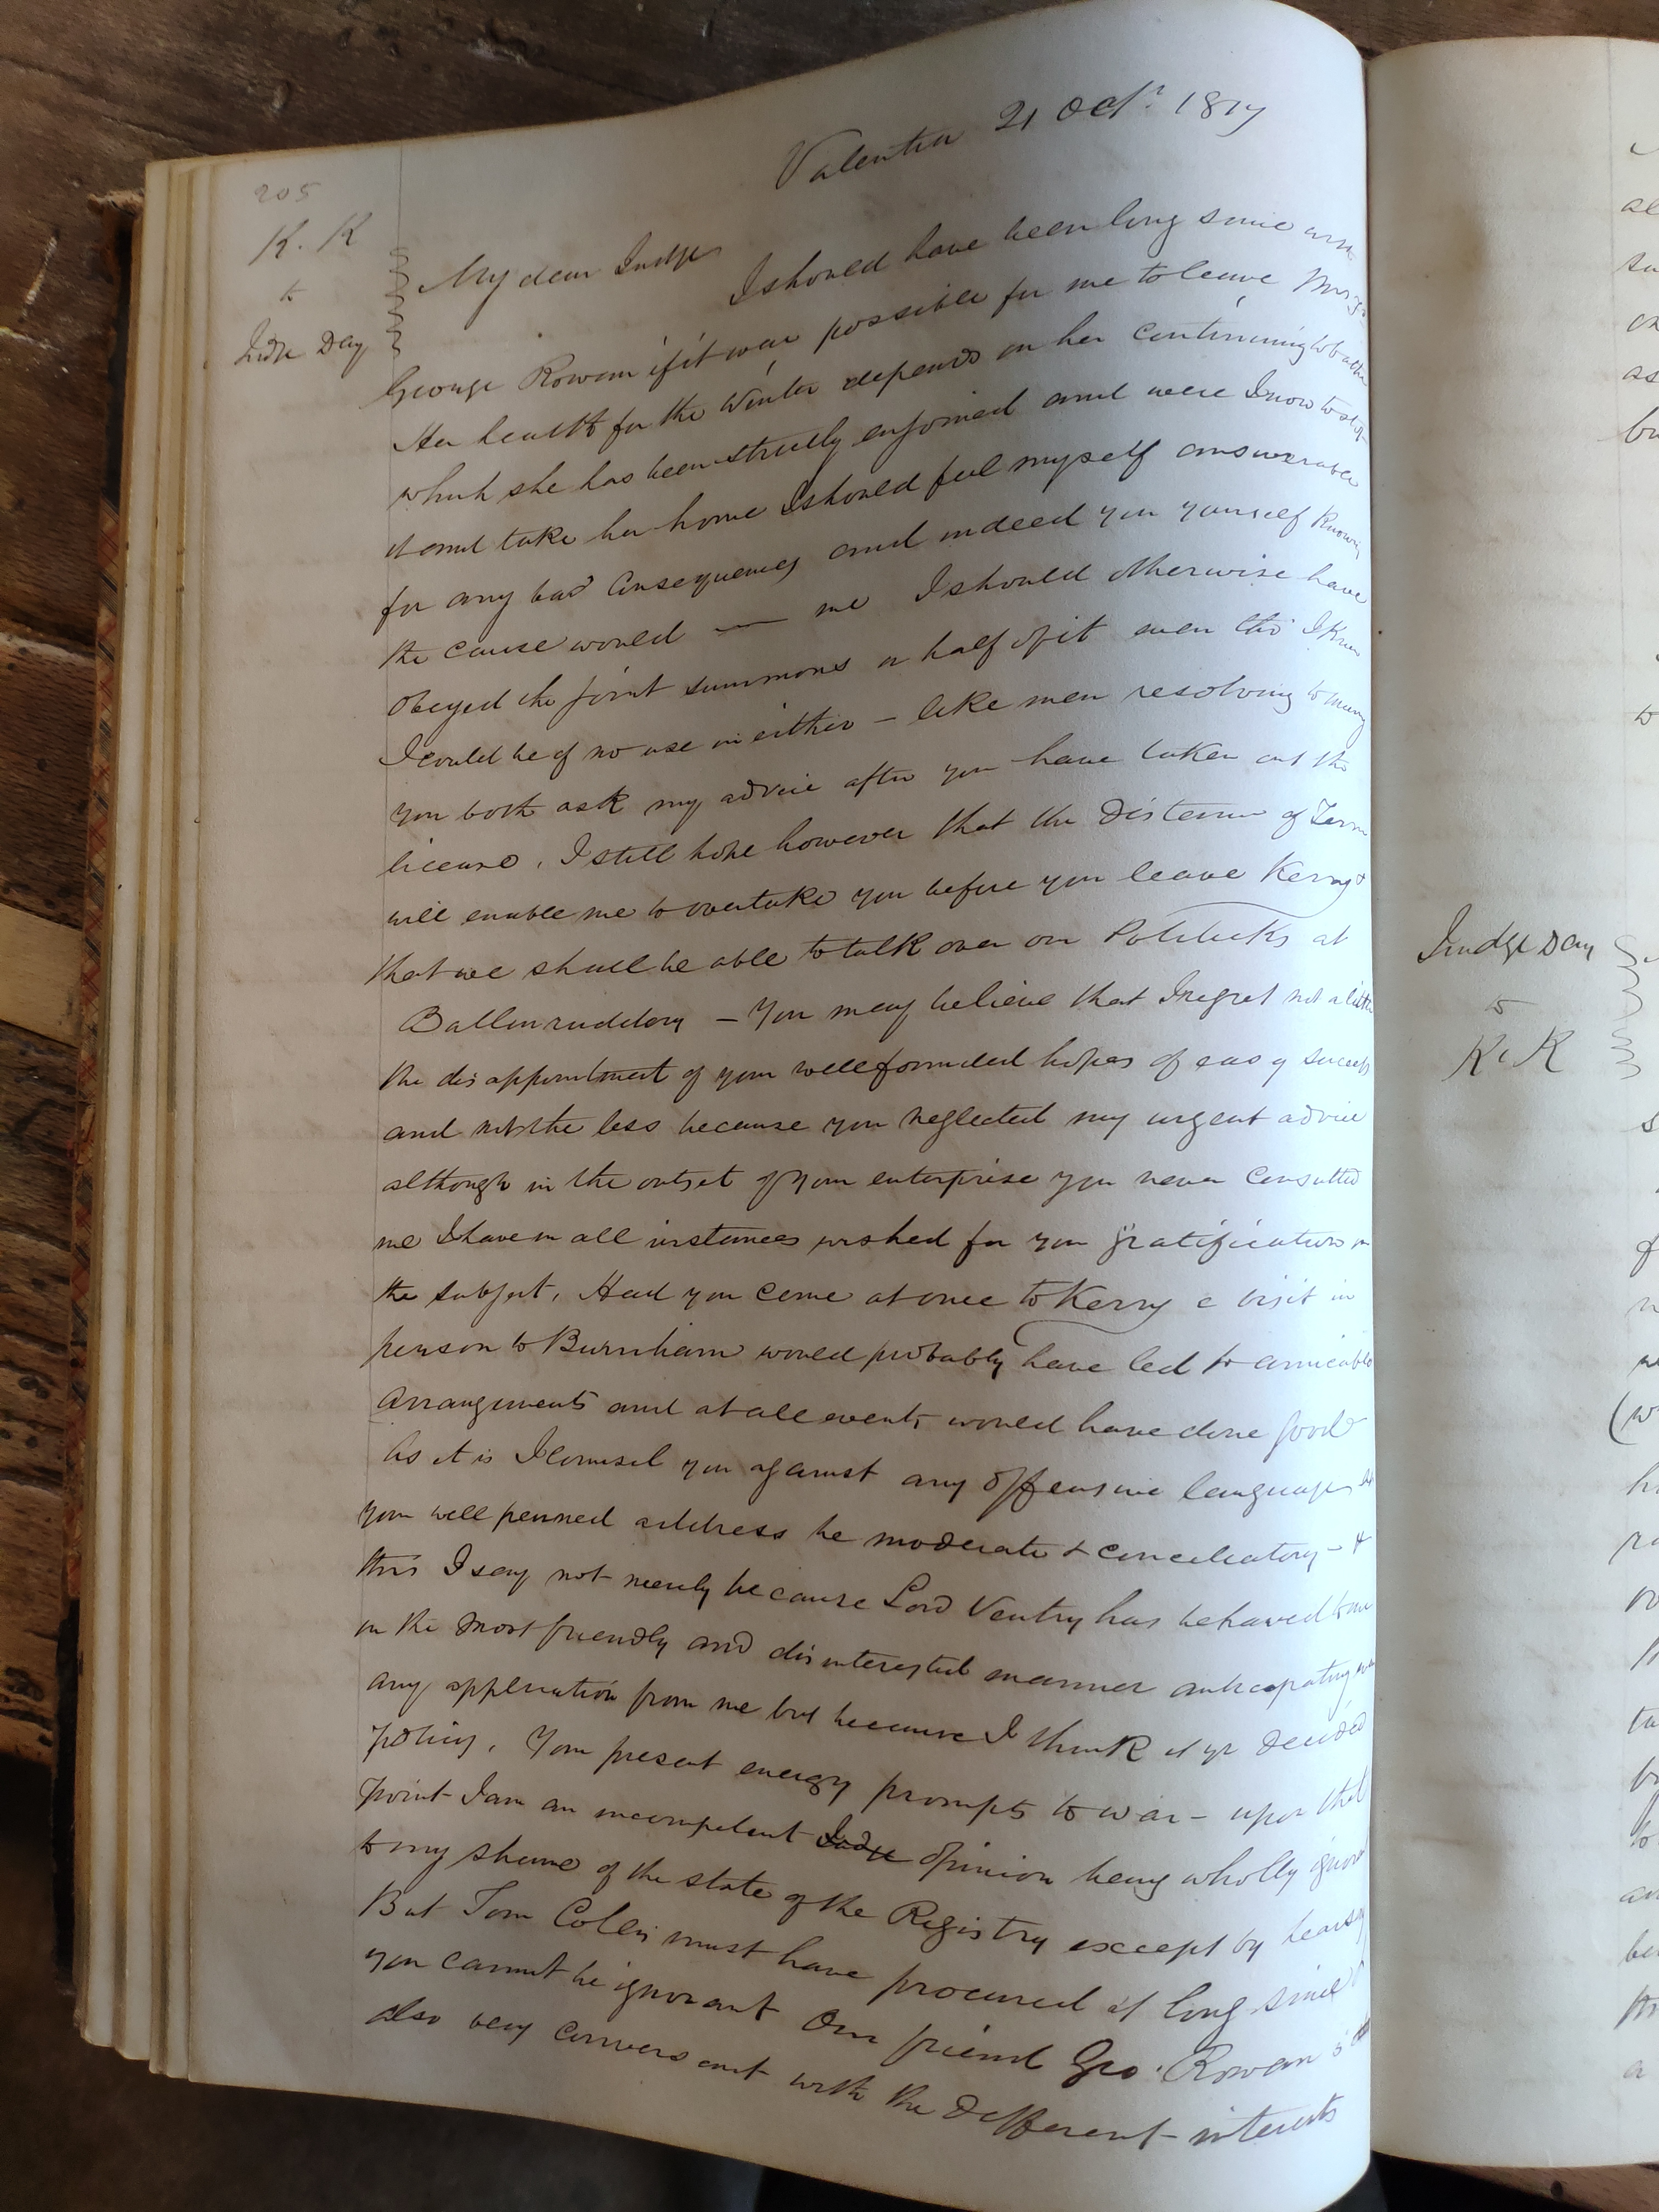 Valentia 21 Octr. 1817
205
K. K
to
Judge Day
My dear Judge
I should have been long since with
George Rowan if it was possible for me to leave Mrs
Her health for the Winter depends on her continuing to bathe
which she has been strictly enjoined and were I now to stop
it and take her home I should feel myself answerable
for any bad consequences and indeed you yourself knowing
the cause would — me I should otherwise have
obeyed the joint summons or half of it even tho' I knew
I could be of no use in either – like men resolving to marry
you both ask my advice after you have taken out the
license. I still hope however that the distance of Term
will enable me to overtake you before you leave Kerry &
that we shall be able to talk over our Politicks at
Ballinruddery – You may believe that I regret not a little
the disappointment of your well founded hopes of easy success
and not the less because you neglected my urgent advice
although in the outset of your enterprise you never consulted
me I have in all instances wished for your gratification in
the subject. Had you come at once to Kerry a visit in
person to Burnham would probably have led to amicable
arrangements and at all events would have done good
As it is I counsel you against any offensive language let
your well penned address be moderate & conciliatory – &
this I say not merely because Lord Ventry has behaved to me
in the most friendly and disinterested manner anticipating
any application from me but because I think it yr decided
policy. Your present energy prompts to war – upon that
point I am an incompetent Judge opinion being wholly ignorant
to my shame of the state of the Registry except by hearsay
But Tom Collis must have procured it long since
you cannot be ignorant Our friend Geo. Rowan is
also very conversant with the different interests
Judge Day
to
K K